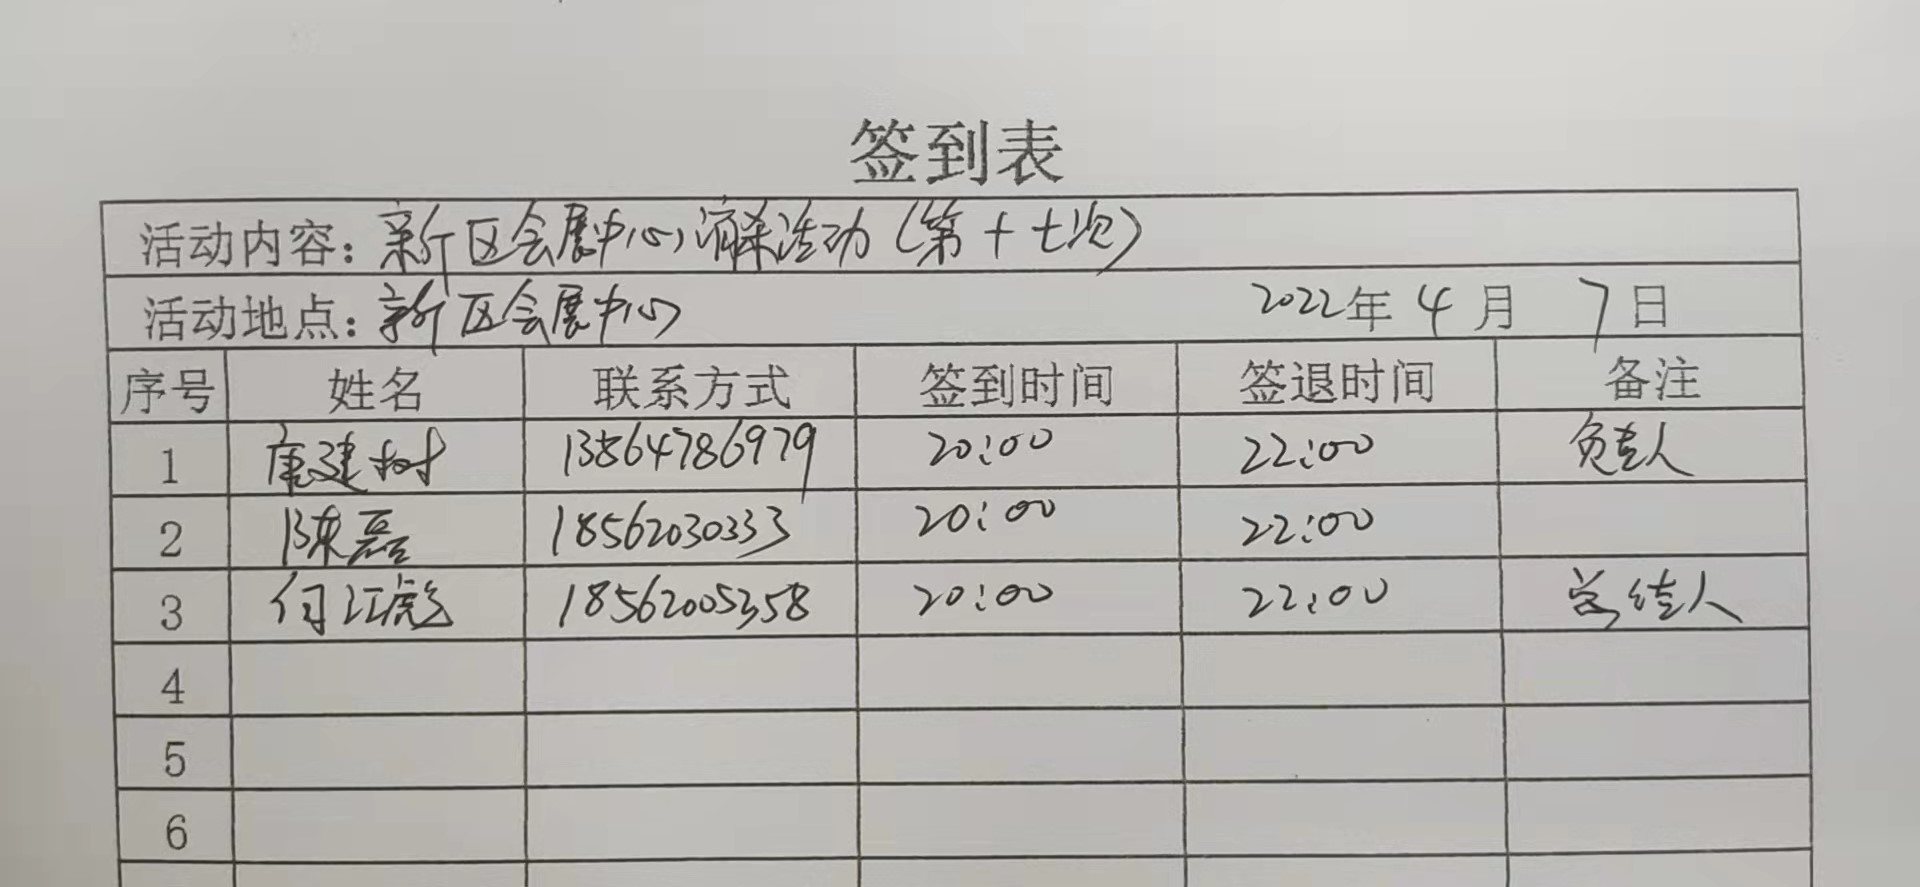 签到表
活动内容：新区会展中心消杀活动（第十七次）
活动地点：新区会展中心 2022年4月7日
序号 姓名 联系方式 签到时间 签退时间 备注
1 康建树 13864786979 20:00 22:00 负责人
2 陈磊 18562030333 20:00 22:00
3 何江彪 18562005358 20:00 22:00 总结人
4
5
6